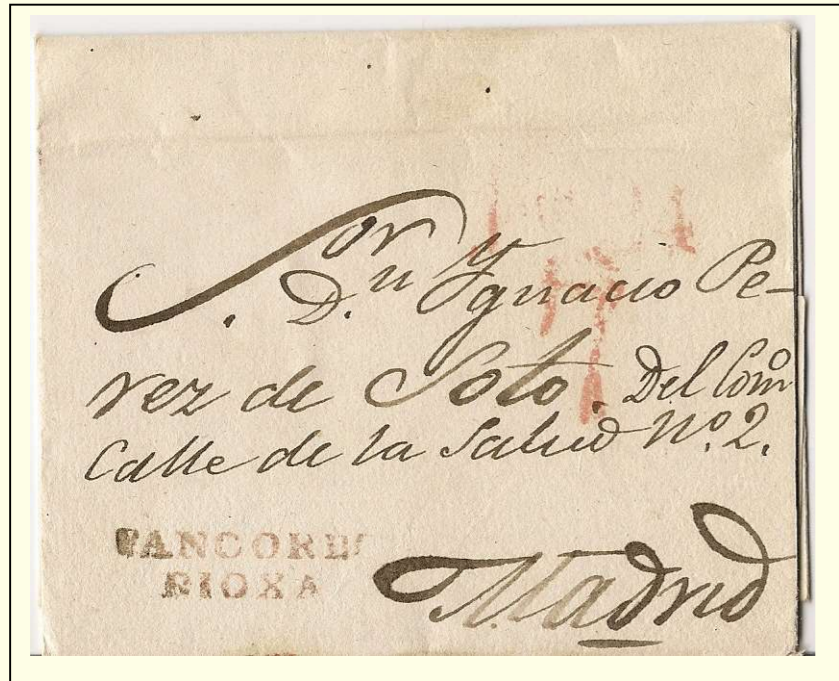 S.or D.n Ygnacio Pe-
rez de Soto. Del Como
Calle de la Salud No. 2.
PANCORBO
RIOXA
Madrid